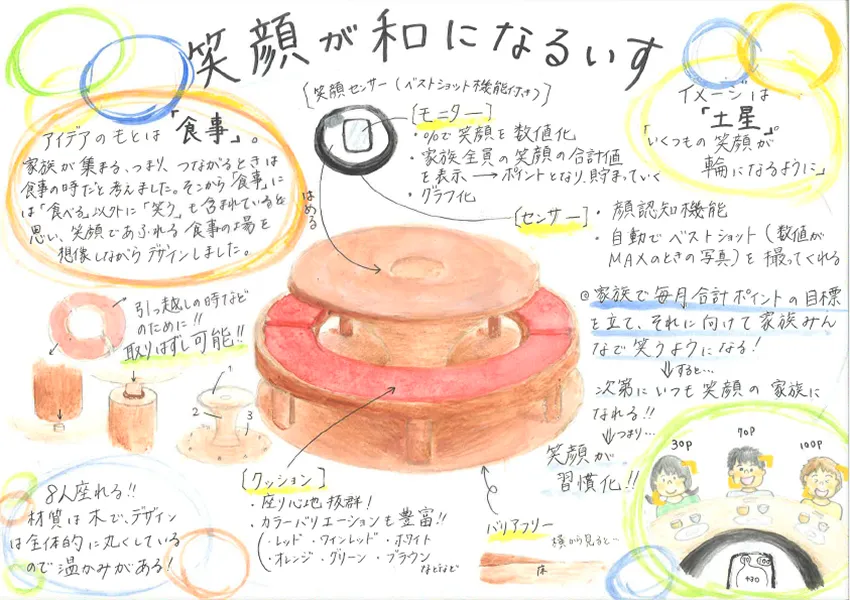 笑顔が和になるいす
アイデアのもとは「食事」。
家族が集まる、つまり、つながるときは
食事の時だと考えました。そこから「食事」に
は「食べる」以外に「笑う」も含まれていると
思い、笑顔であふれる食事の場を
想像しながらデザインしました。
[笑顔センサー(ベストショット機能付き)]
はめる
[モニター]
・%で笑顔を数値化
・家族全員の笑顔の合計値
を表示→ポイントとなり、貯まっていく
・グラフ化
イメージは
「土星」。
「いくつもの笑顔が
輪になるように」
[センサー]・顔認知機能
・自動でベストショット(数値が
MAXのときの写真)を撮ってくれる
◎家族で毎月合計ポイントの目標
を立て、それに向けて家族みん
なで笑うようになる!
⇓すると…
次第にいつも笑顔の家族に
なれる!!
⇓つまり…
笑顔が
習慣化!!
引っ越しの時など
のために!!
取りはずし可能!!
1
2
3
8人座れる!!
材質は木で、デザイン
は全体的に丸くしている
ので温かみがある!
[クッション]
・座り心地抜群!
・カラーバリエーションも豊富!!
(・レッド ・ワインレッド ・ホワイト
・オレンジ ・グリーン ・ブラウン
などなど
バリアフリー
横から見ると…
床
30P
70P
100P